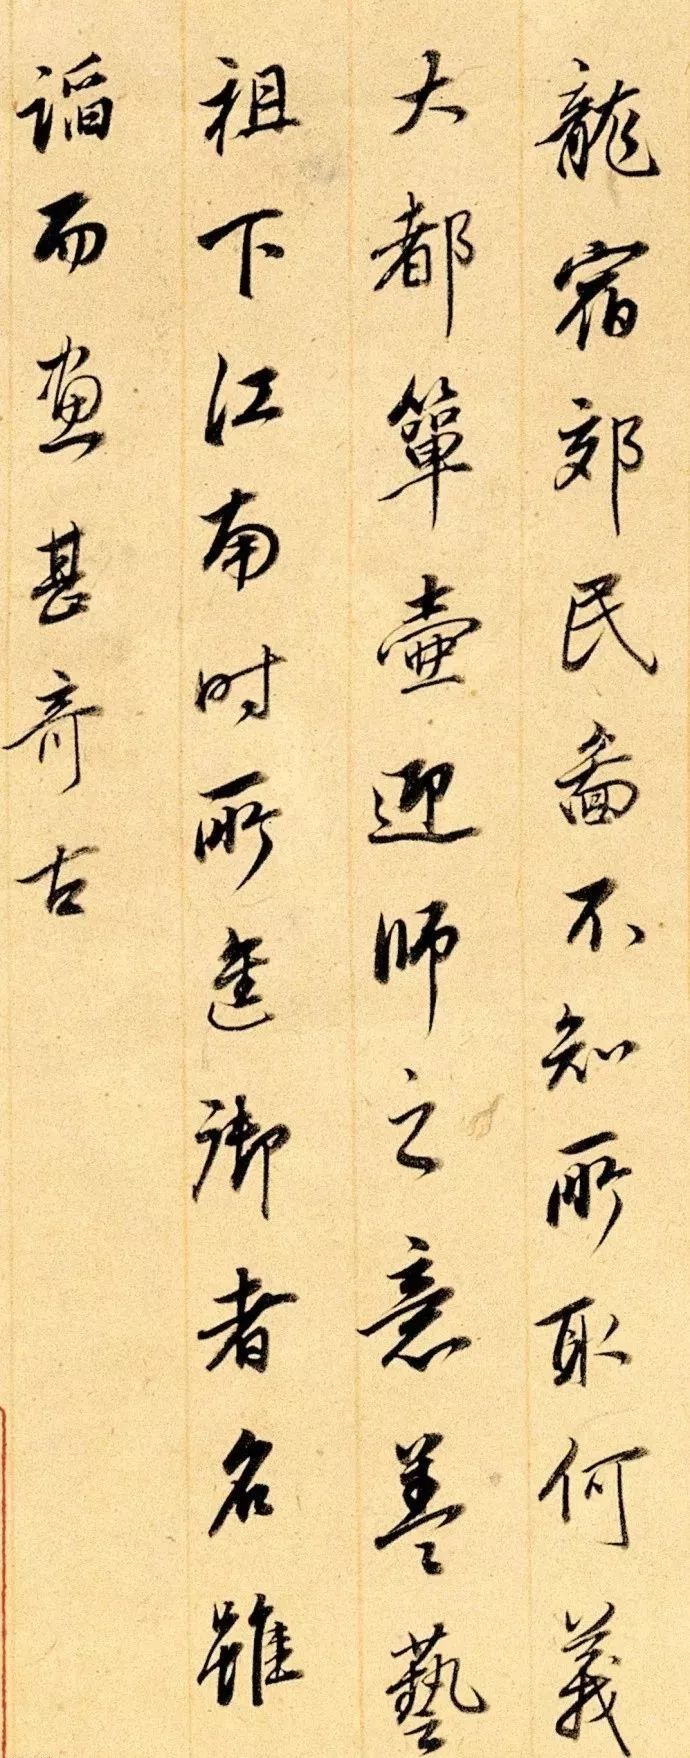 龍宿郊民圖不知所取何義
大都簞壷迎師之意蓋藝
祖下江南時所進御者名雖
謟而畫甚奇古